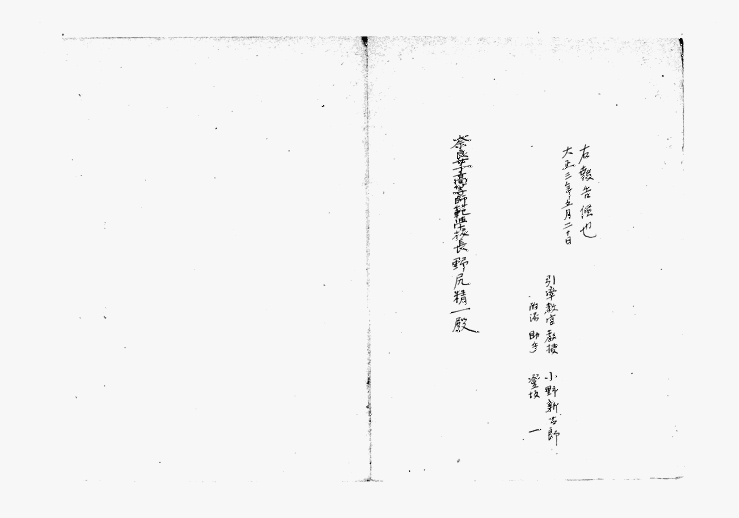 右報告候也
大正三年五月二十日
引率教官教授 小野新太郎
助手 登坂 一
奈良女子高等師範学校長野尻精一殿